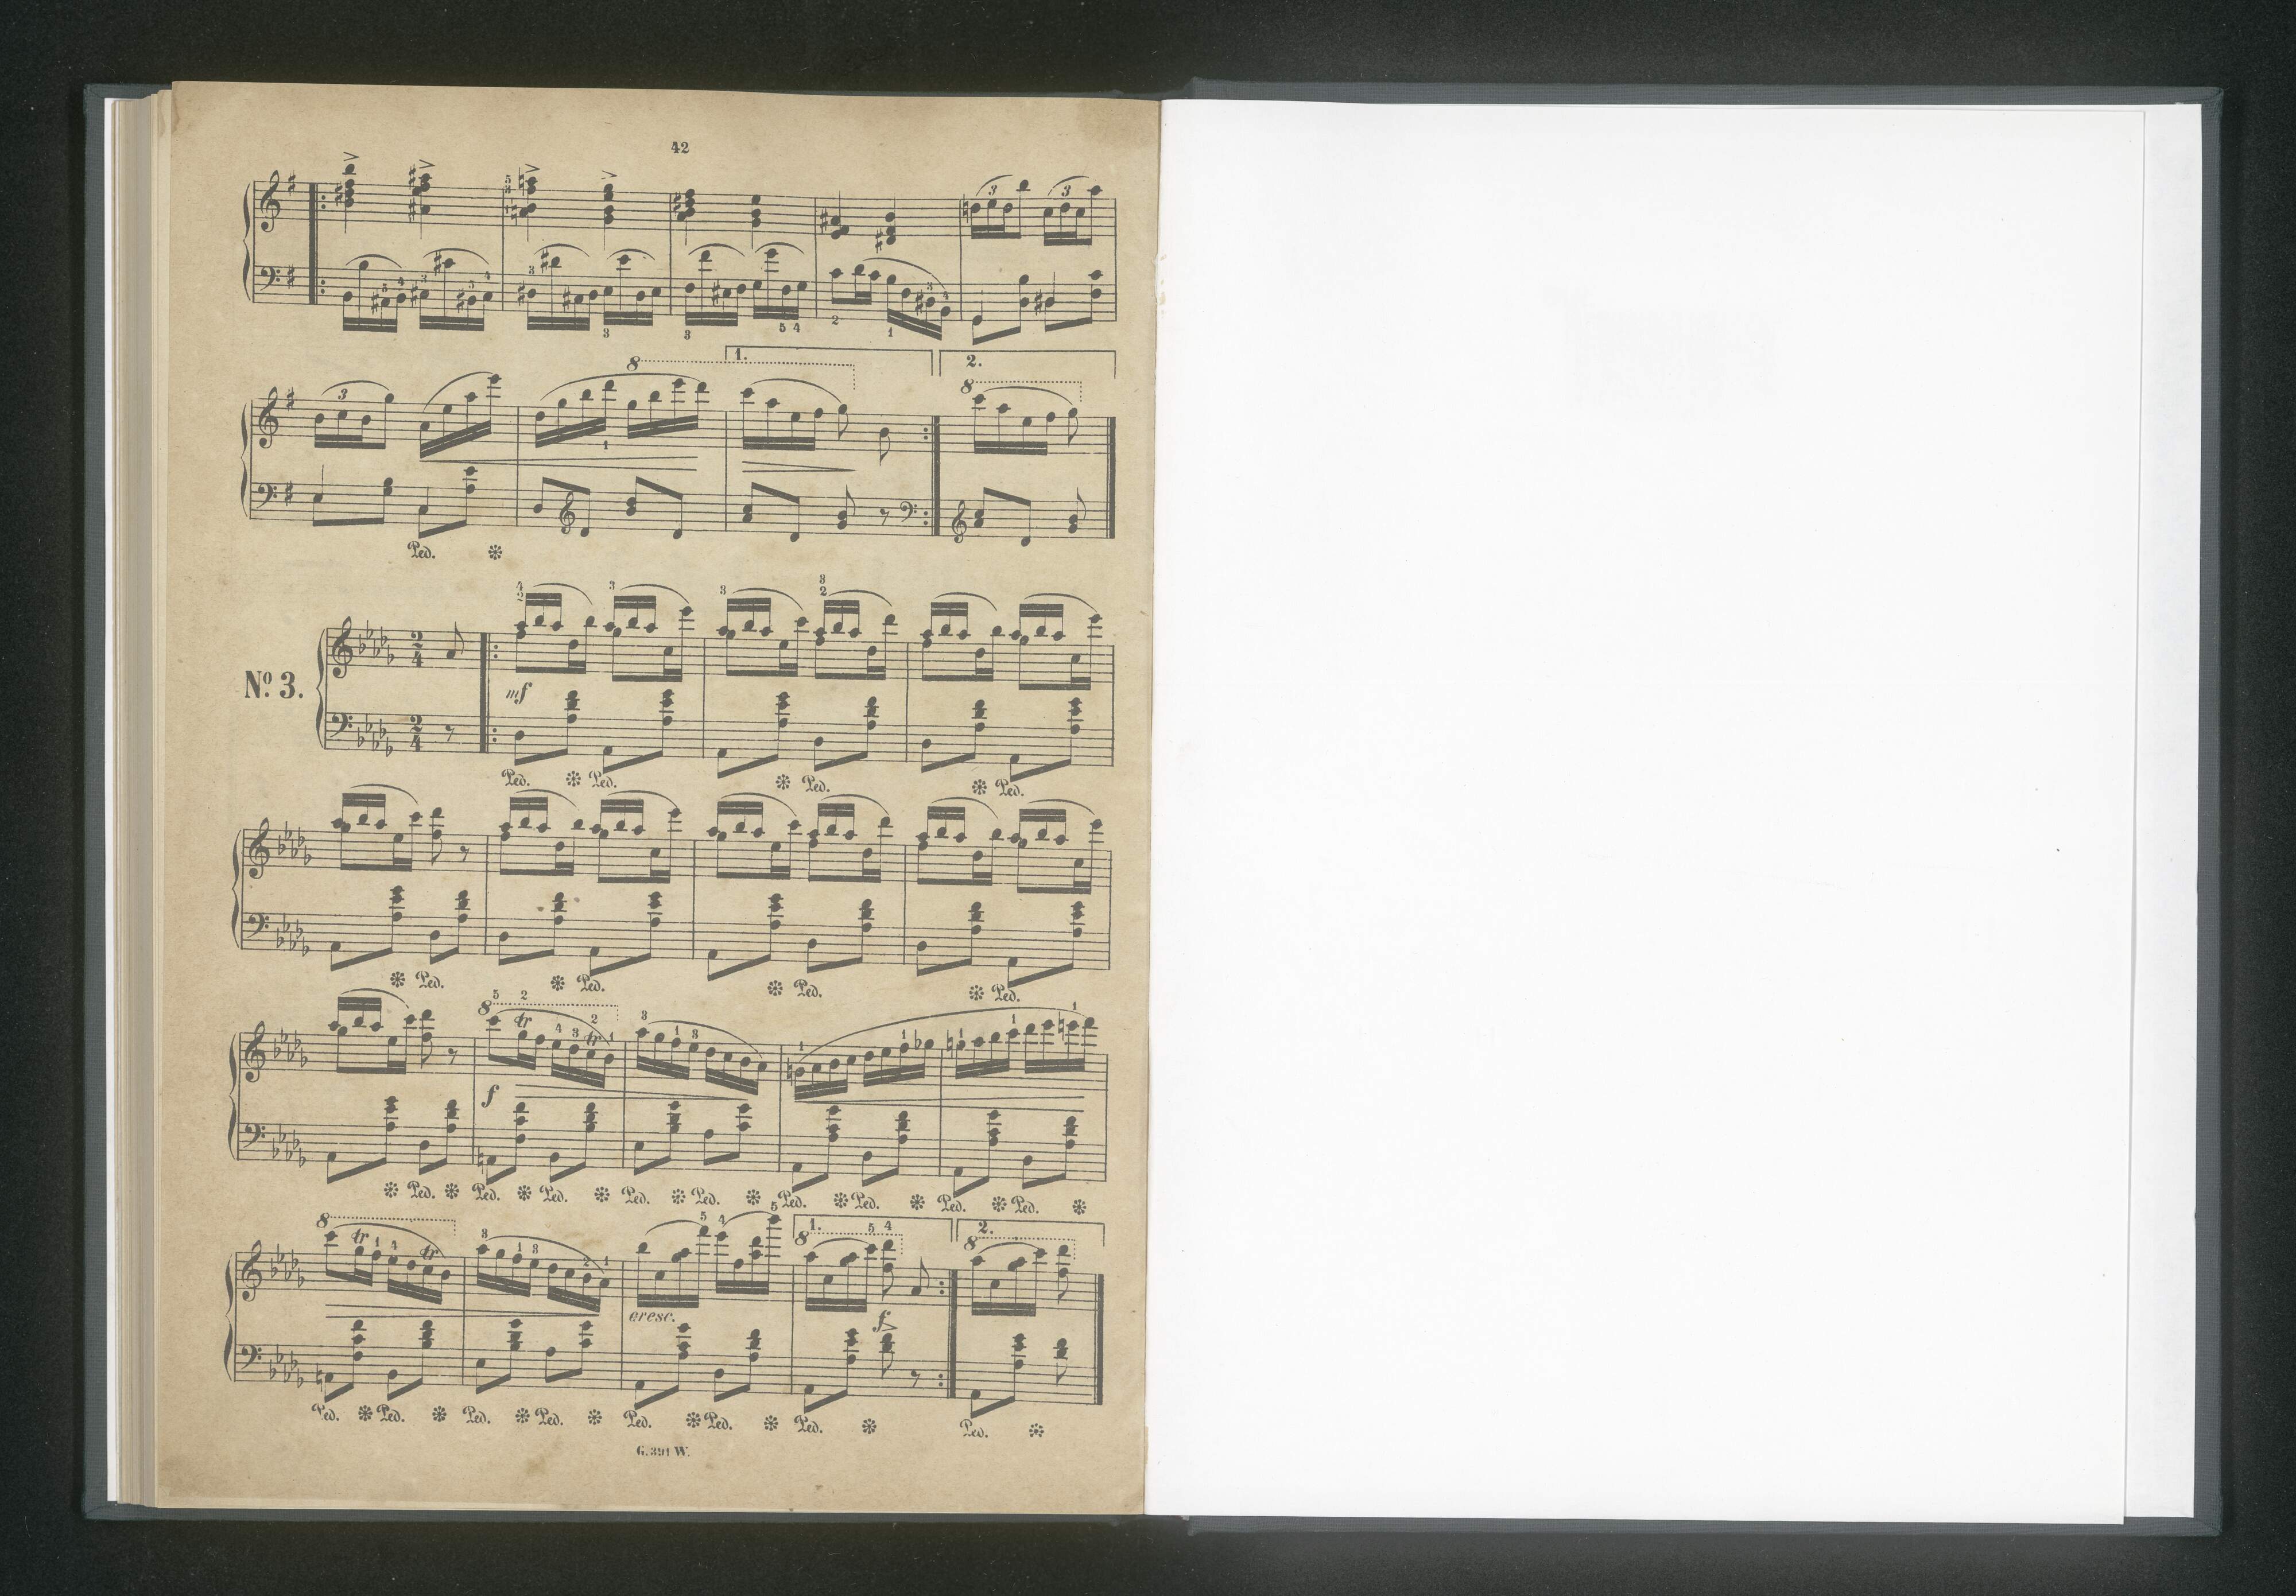 42
1.
2.
8
8
Ped.
Nº 3.
mf
Ped. Ped. Ped. Ped.
Ped. Ped. Ped. Ped.
8
tr tr
f
Ped. Ped. Ped. Ped. Ped. Ped. Ped. Ped. Ped.
8
tr tr
1.
8
2.
8
cresc.
f
Ped. Ped. Ped. Ped. Ped. Ped. Ped. Ped.
G. 391 W.